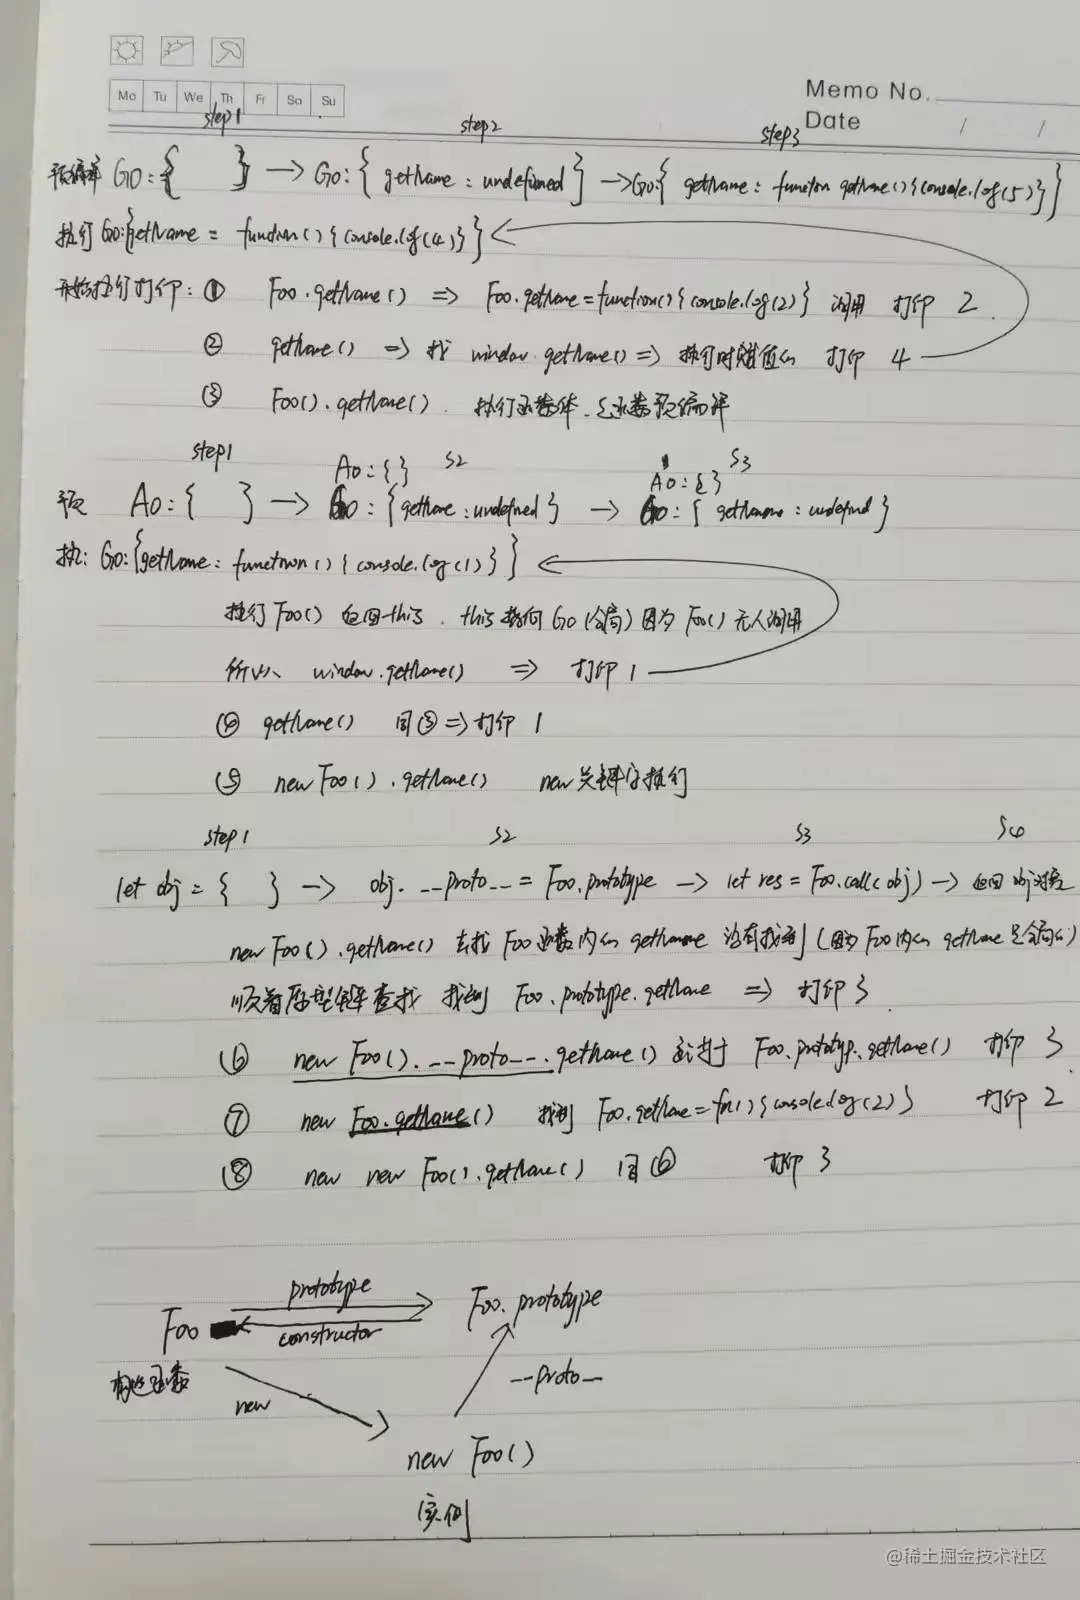 Mo Tu We Th Fr Sa Su
Memo No.
Date / /
step1 step2 step3
预编译 GO:{ } → GO:{ getName : undefined } → GO:{ getName : function getName(){console.log(5)}}
执行 GO:{getName = function(){console.log(4)}}
开始执行打印: ① Foo.getName() => Foo.getName=function(){console.log(2)} 调用 打印 2.
② getName() => 找 window.getName() => 执行时赋值的 打印 4
③ Foo().getName() . 执行函数体.
step1 S2 S3
AO:{ } AO:{ }
预 AO:{ } → GO:{getName:undefined} → GO:{ getName:undefined }
执: GO:{getName: function(){console.log(1)}}
执行 Foo() 返回this . this指向 GO (全局) 因为 Foo() 无人调用
所以、window.getName() => 打印 1
④ getName() 同③=>打印 1
⑤ new Foo().getName() new关键字执行
step1 S2 S3 S4
let obj = { } → obj.__proto__ = Foo.prototype → let res = Foo.call(obj) → 返回 obj对象
new Foo().getName() 去找 Foo函数内的 getName 没有找到 (因为 Foo内的 getName 是全局的)
顺着原型链查找 找到 Foo.prototype.getName => 打印 3
⑥ new Foo().__proto__.getName() 等于 Foo.prototyp.getName() 打印 3
⑦ new Foo.getName() 找到 Foo.getName=fn(){console.log(2)} 打印 2
⑧ new new Foo().getName() 同⑥ 打印 3
prototype
Foo Foo.prototype
constructor
构造函数 __proto__
new
new Foo()
实例
@稀土掘金技术社区